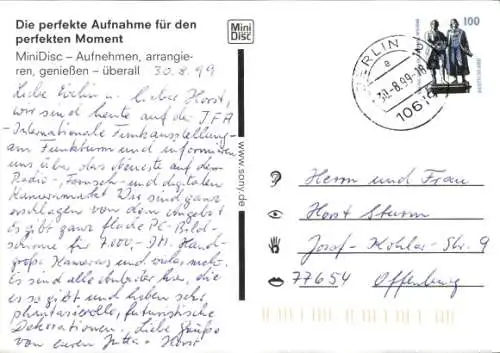 Die perfekte Aufnahme für den
perfekten Moment
MiniDisc – Aufnehmen, arrangie-
ren, genießen – überall 30.8.99
Mini
Disc
Liebe Evelin u. lieber Horst,
wir sind heute auf der IFA
-Internationale Funkausstellung-
am Funkturm und informieren
uns über das Neueste auf dem
Radio-, Fernseh- und digitalen
Kameramarkt. Wir sind ganz
erschlagen von dem Angebot.
Es gibt ganz flache PC-Bild-
schirme für 7.000,- DM. Hand-
große Kameras und vieles mehr.
Es sind alle da, die
es so gibt und haben sehr
phantasievolle, futuristische
Dekorationen. Liebe Grüße
von euren Jutta + Horst
www.sony.de
BERLIN
30.-8.99-18
e
1061
100
Herrn und Frau
Horst Sturm
Josef-Kohler-Str. 9
77654 Offenburg